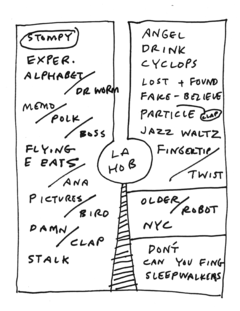 STOMPY
EXPER.
ALPHABET/
DR WORM
MEMO/
POLK/
BOSS
FLYING
E EATS/
ANA
PICTURES/
BIRD
DAMN/
CLAP
STALK
LA
HOB
ANGEL
DRINK
CYCLOPS
LOST + FOUND
FAKE-BELIEVE
PARTICLE CLAP
JAZZ WALTZ
FINGERTIP/
TWIST
OLDER/
ROBOT
NYC
DON'T
CAN YOU FING
SLEEPWALKERS